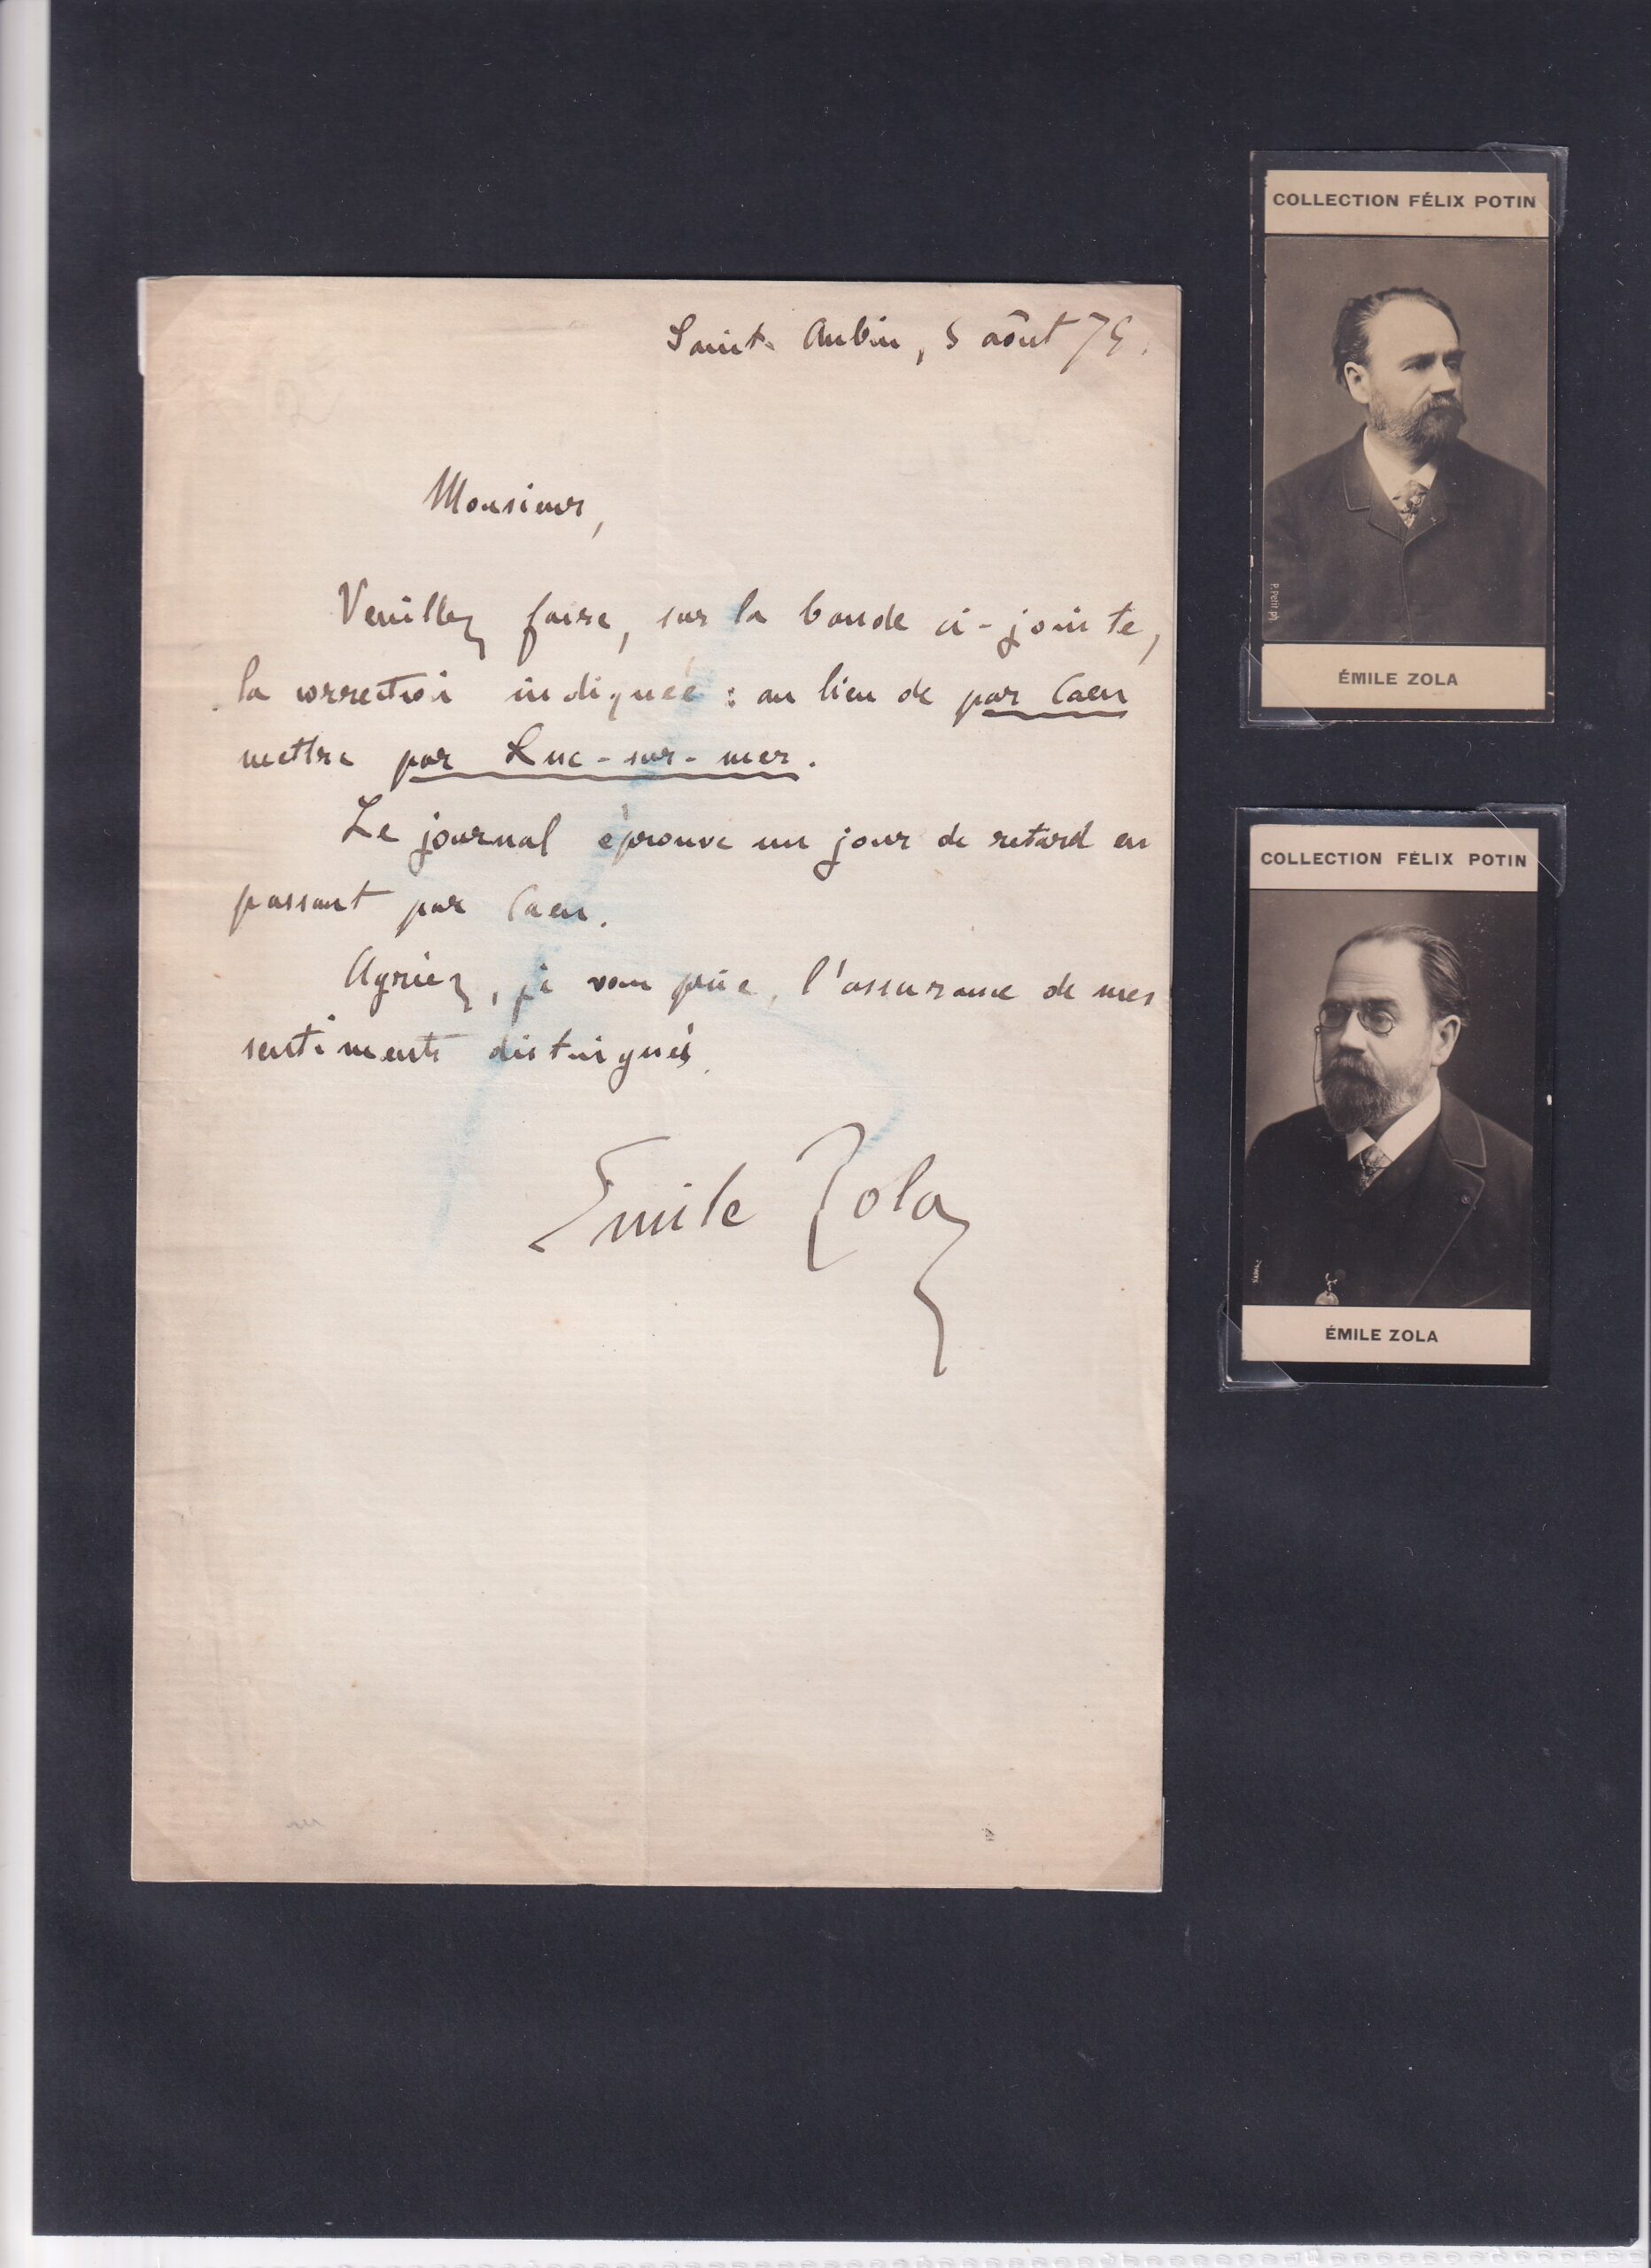 Saint-Aubin, 5 août 75.
Monsieur,
Veuillez faire, sur la bande ci-jointe,
la correction indiquée : au lieu de par Caen
mettre par Luc-sur-mer.
Le journal éprouve un jour de retard en
passant par Caen.
Agréez, je vous prie, l'assurance de mes
sentiments distingués.
Emile Zola
COLLECTION FÉLIX POTIN
P. Petit ph
ÉMILE ZOLA
COLLECTION FÉLIX POTIN
ÉMILE ZOLA